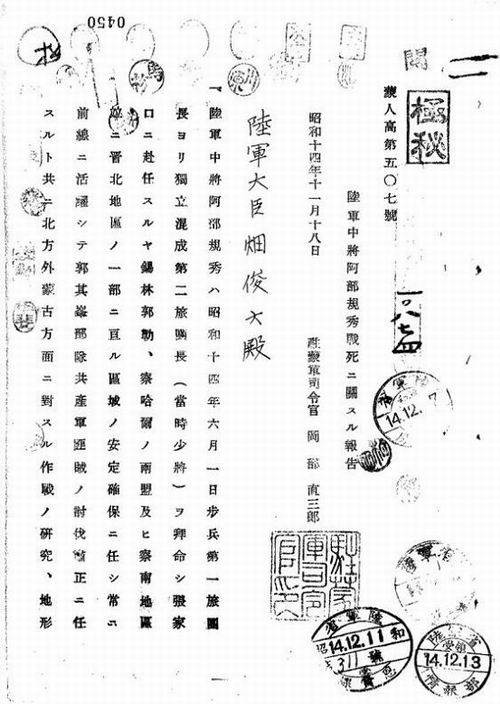 極秘
蒙人高第五〇七號
陸軍中將阿部規秀戰死ニ關スル報告
昭和十四年十一月十八日
駐蒙軍司令官 岡部直三郎
陸軍大臣畑俊六殿
一、陸軍中將阿部規秀ハ昭和十四年六月一日步兵第一旅團
長ヨリ獨立混成第二旅團長(當時少將)ヲ拜命シ張家
口ニ赴任スルヤ錫林郭勒、察哈爾ノ兩盟及ヒ察南地區
並ニ晋北地區ノ一部ニ亘ル區域ノ安定確保ニ任シ常ニ
前線ニ活躍シテ郭其峯部隊共產軍匪賊ノ討伐肅正ニ任
スルト共ニ北方外蒙古方面ニ對スル作戰ノ研究、地形
0450
14.12.7
14.12.11
14.12.13